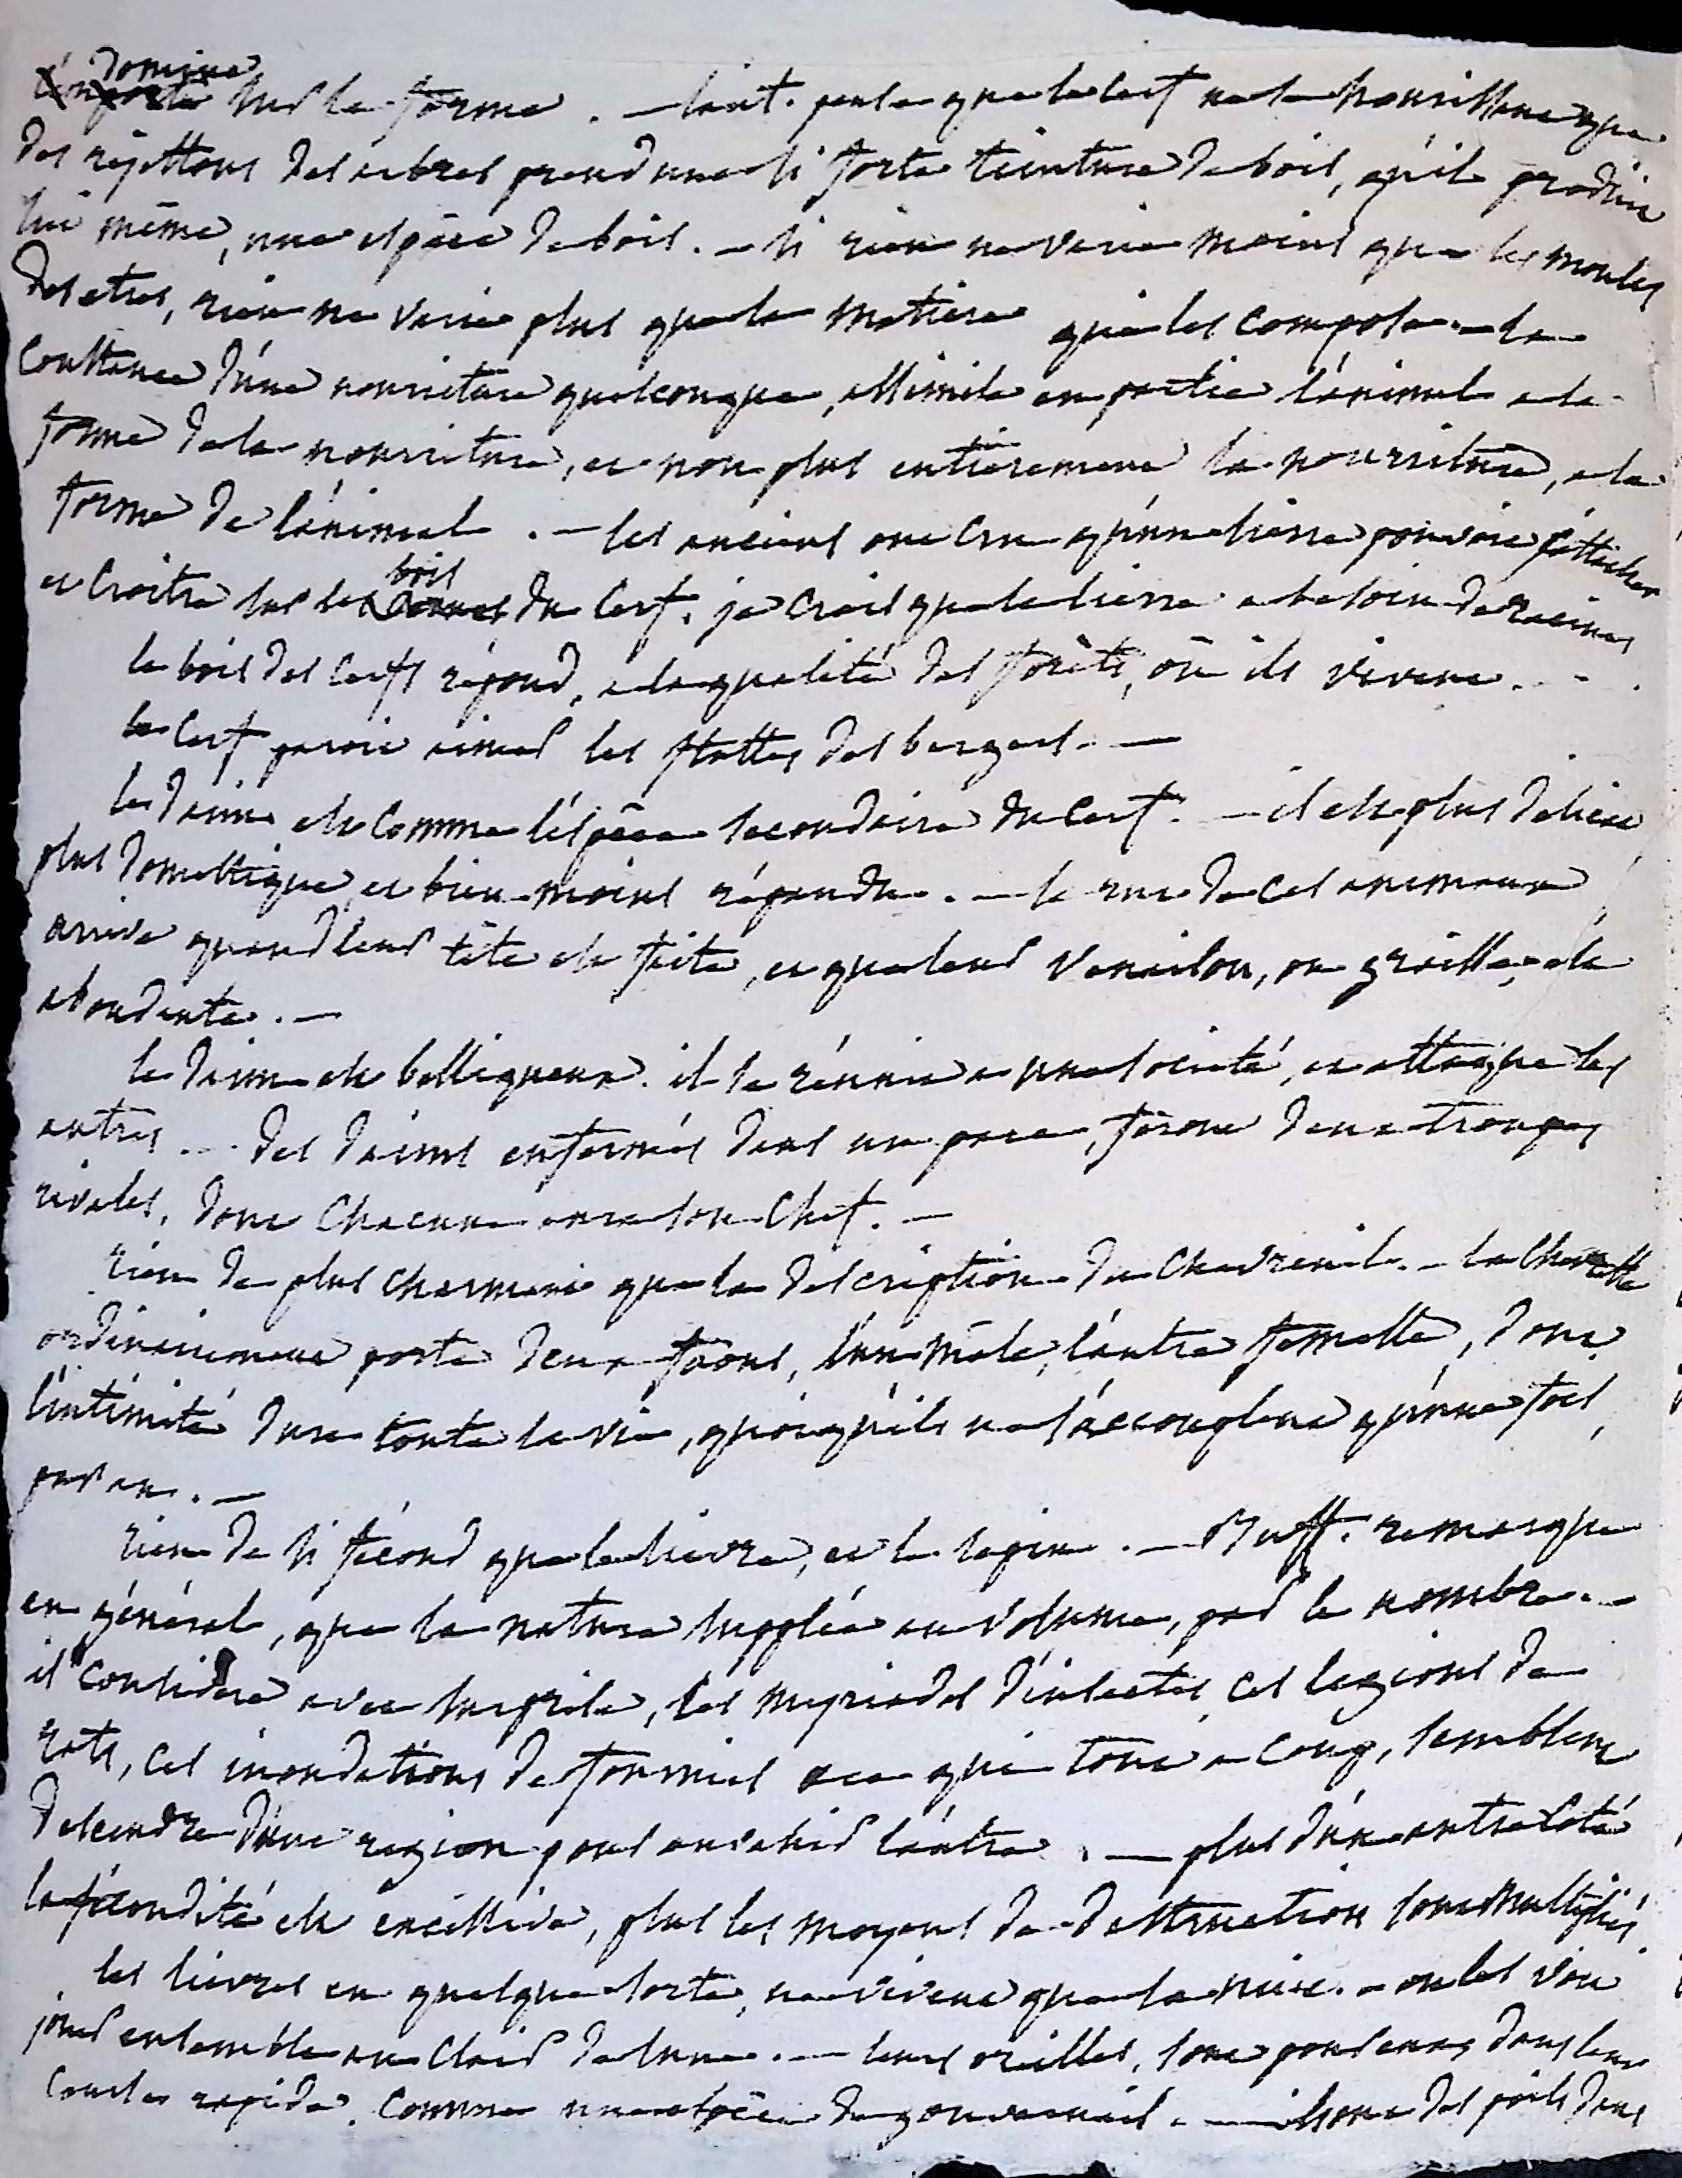 domine
l'emporte sur la forme. — tout. parce que le cerf ne se nourissant que
des rejettons des arbres prend une si forte teinture de bois, qu'il produit
lui même, une espèce de bois. — si rien ne varie moins que les moules
des etres, rien ne varie plus que la matiere qui les compose. — la
constance d'une nourriture quelconque, assimile en partie l'animal a la
forme de la nourriture, et non plus entierement la nourriture, a la
forme de l'animal. — les anciens ont cru qu'un lierre pouvoit s'attacher
bois
et croitre sur les cornes du cerf. je crois que le lierre a besoin de racines
le bois des cerfs répond, a la qualité des forêts, où ils vivent. - - .
le cerf paroit aimer les flattes des bergers. —
le daim est comme l'éspèce secondaire du cerf. — il est plus délicat
plus domestique et bien moins répandu. — le rut de ces animaux
arrive quand leur tête est faite, et que leur venaison, ou graisse, est
abondante. —
le daim est belliqueux. il se réunit a une société, et attaque les
autres. — des daims enfermés dans un parc, feront deux troupes
rivales, dont chacune aura son chef. —
rien de plus charmant que la description du chevreuil. — la chevrette
ordinairement porte deux faons, l'un mâle, l'autre femelle, dont
l'intimité dure toute la vie, quoiqu'ils ne s'accouplent qu'une fois
par an. —
rien de si fécond que le lievre, et le lapin. — Buff. remarque
en général, que la nature supplée au volume, par le nombre. —
il considere avec surprise, les myriades d'insectes, ces legions de
rats, ces inondations de fourmis qui tout a coup, semblent
descendre d'une region pour envahir l'autre. — plus d'un autre coté
la fécondité est excessive, plus les moyens de destruction sont multipliés
les lievres en quelque sorte, ne vivent que la nuit. — on les voit
jouer ensemble au clair de lune. — leurs oreilles, sont pour eux dans leur
course rapide. comme une espèce de gouvernail. — ils ont des poils dans